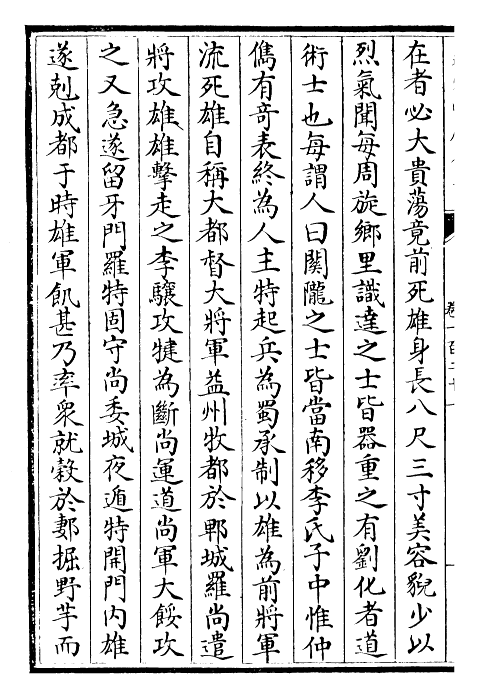 在者必大貴蕩竟前死雄身長八尺三寸美容貌少以
烈氣聞每周旋鄉里識達之士皆器重之有劉化者道
術士也每謂人曰關隴之士皆當南移李氏子中惟仲
儁有奇表終為人主特起兵為蜀承制以雄為前將軍
流死雄自稱大都督大將軍益州牧都於郫城羅尚遣
將攻雄雄擊走之李驤攻犍為斷尚運道尚軍大餒攻
之又急遂留牙門羅特固守尚委城夜遁特開門內雄
遂剋成都于時雄軍飢甚乃率衆就穀於郪掘野芋而